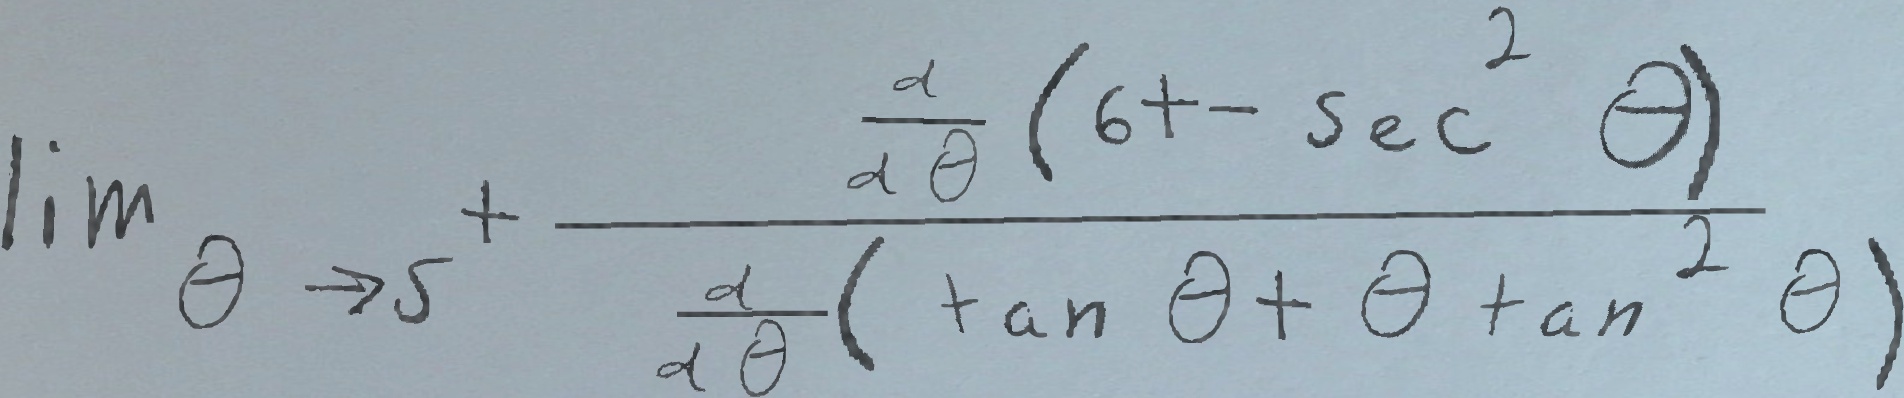 \lim_{\theta \to 5^+} \frac{\frac{d}{d\theta}(6t - \sec^2 \theta)}{\frac{d}{d\theta}(\tan \theta + \theta \tan^2 \theta)}